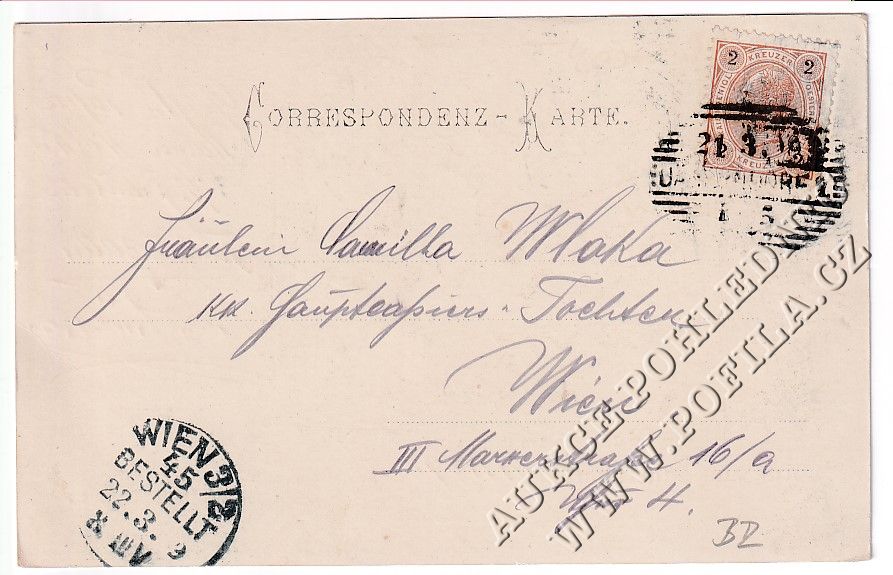 CORRESPONDENZ-KARTE.
2 KREUZER 2
21.3.
Fräulein Camilla Wlaka
kk. Hauptcassiers-Tochter
Wien
III 16/a
4.
WIEN 3/2
45
BESTELLT
22.3.9
8.
BZ
AUKCE POHLEDNIC
WWW.POFILA.CZ